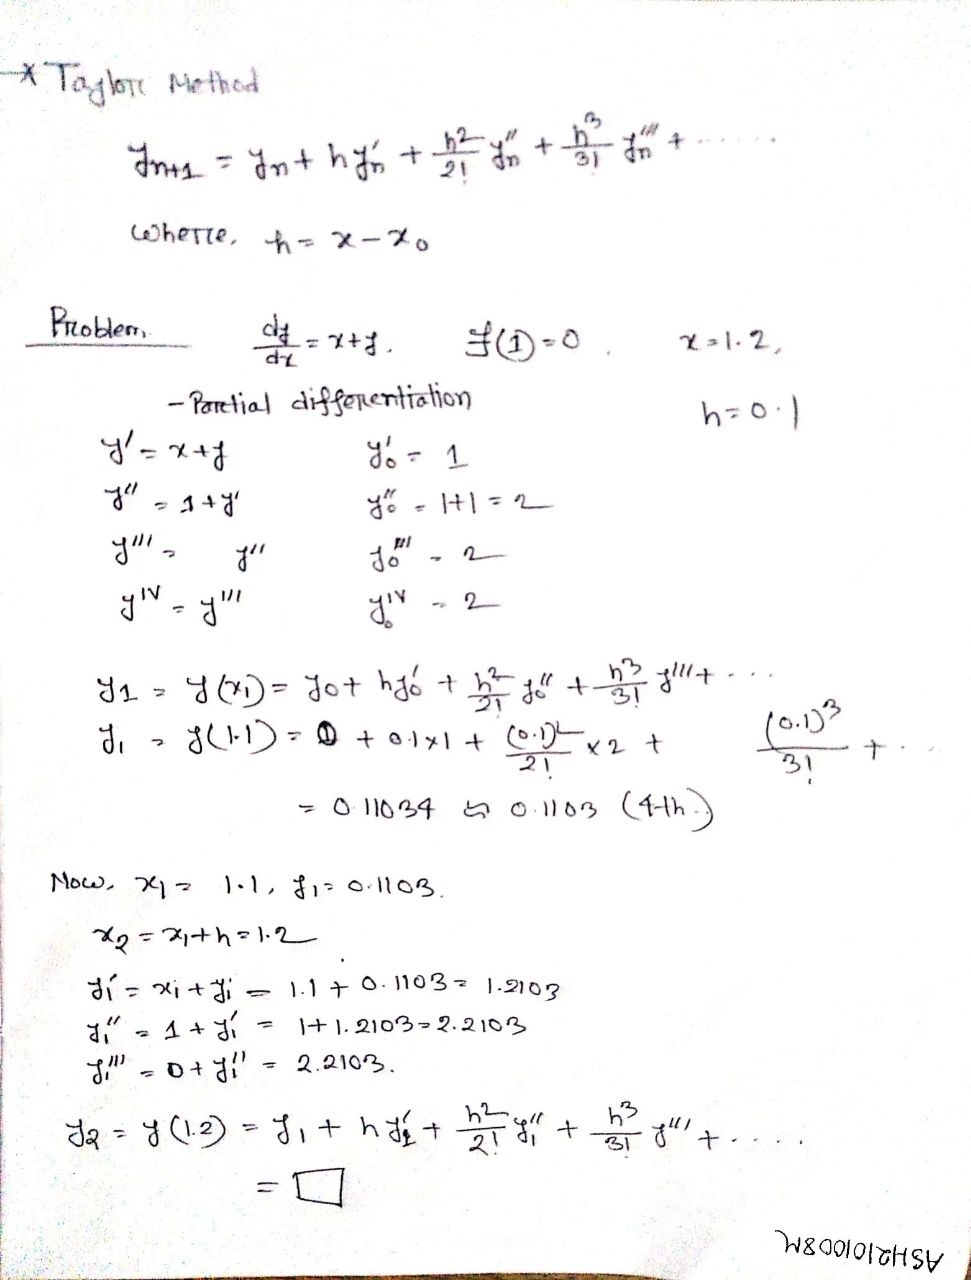 * Taylorr Method
y_{n+1} = y_n + h y'_n + h²/2! y''_n + h³/3! y'''_n + ......
Wherre, h = x - x₀
Problem. dy/dx = x+y. y(1) = 0. x = 1.2,
- Parrtial differrentiation h = 0.1
y' = x+y y'₀ = 1
y'' = 1+y' y''₀ = 1+1 = 2
y''' = y'' y₀''' = 2
y^{IV} = y''' y₀^{IV} = 2
y1 = y(x₁) = y₀ + hy'₀ + h²/2! y₀'' + h³/3! y''' + ....
y₁ = y(1.1) = 0 + 0.1x1 + (0.1)²/2! x 2 + (0.1)³/3! + ...
= 0.11034 ≈ 0.1103 (4th.)
Now, x₁ = 1.1, y₁ = 0.1103.
x₂ = x₁+h = 1.2
y₁' = x₁ + y₁ = 1.1 + 0.1103 = 1.2103
y₁'' = 1 + y₁' = 1 + 1.2103 = 2.2103
y₁''' = 0 + y₁'' = 2.2103.
y₂ = y(1.2) = y₁ + h y'₁ + h²/2! y₁'' + h³/3! y''' + ....
= □
ASH2101008M